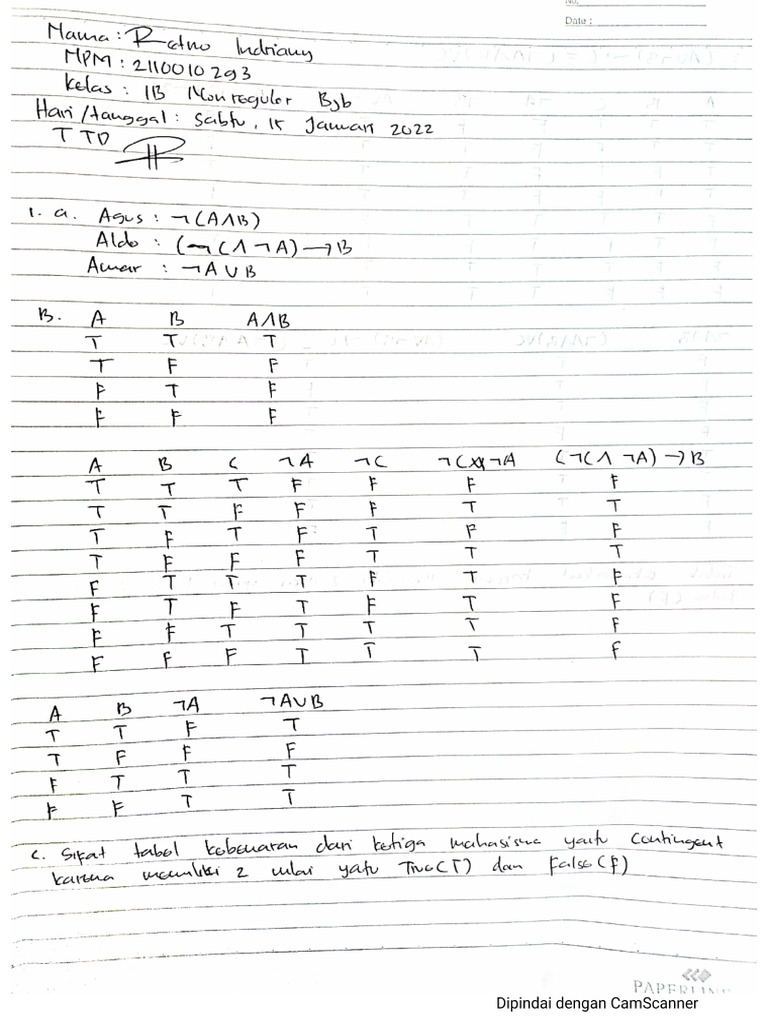 No.
Date :
Nama : Retno Indriany
NPM : 2110010293
Kelas : 1B Nonreguler Bjb
Hari / tanggal : Sabtu, 15 Januari 2022
TTD
1. a. Agus : ¬(A∧B)
Aldo : (¬C∧¬A) → B
Amar : ¬A ∪ B
B. A B A∧B
T T T
T F F
F T F
F F F
A B C ¬A ¬C ¬C∧¬A (¬C∧ ¬A) → B
T T T F F F F
T T F F F T T
T F T F T F F
T F F F T T T
F T T T F T F
F T F T F T F
F F T T T T F
F F F T T T F
A B ¬A ¬A∪B
T T F T
T F F F
F T T T
F F T T
c. Sifat tabel kebenaran dari ketiga mahasiswa yaitu Contingent
karena memiliki 2 nilai yaitu True(T) dan False(F)
PAPERLINE
Dipindai dengan CamScanner